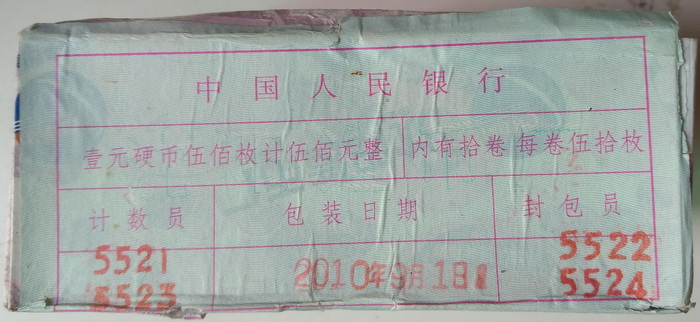 中国人民银行
壹元硬币伍佰枚计伍佰元整 内有拾卷 每卷伍拾枚
计数员 包装日期 封包员
5521 2010年9月18 5522
5523 5524